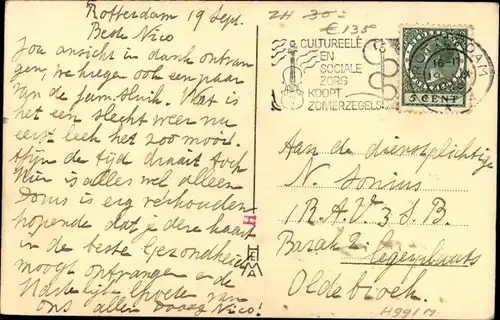 Rotterdam 19 Sept.
Beste Nico
Jou ansicht in dank ontvan-
gen, we kregen ook een paar
van de Wat is
het een slecht weer nu
eerst leek het zoo mooi.
de tijd draait toch
Hier is alles wel alleen
Dorus is erg verkouden
hopende dat je deze kaart
in de beste Gezondheid
moogt ontvangen en de
Hartelijke Groete van
ons allen Daaag Nico!
H
HEMA
2H 30.-
€ 1350
CULTUREELE
EN
SOCIALE
ZORG
KOOPT
ZOMERZEGELS
ROTTERDAM
5 CENT
Aan de dienstplichtige
N. Sonius
1 R.A.V. 3 S.B.
Barak 2.
Legerplaats
Oldebroek.
H991M